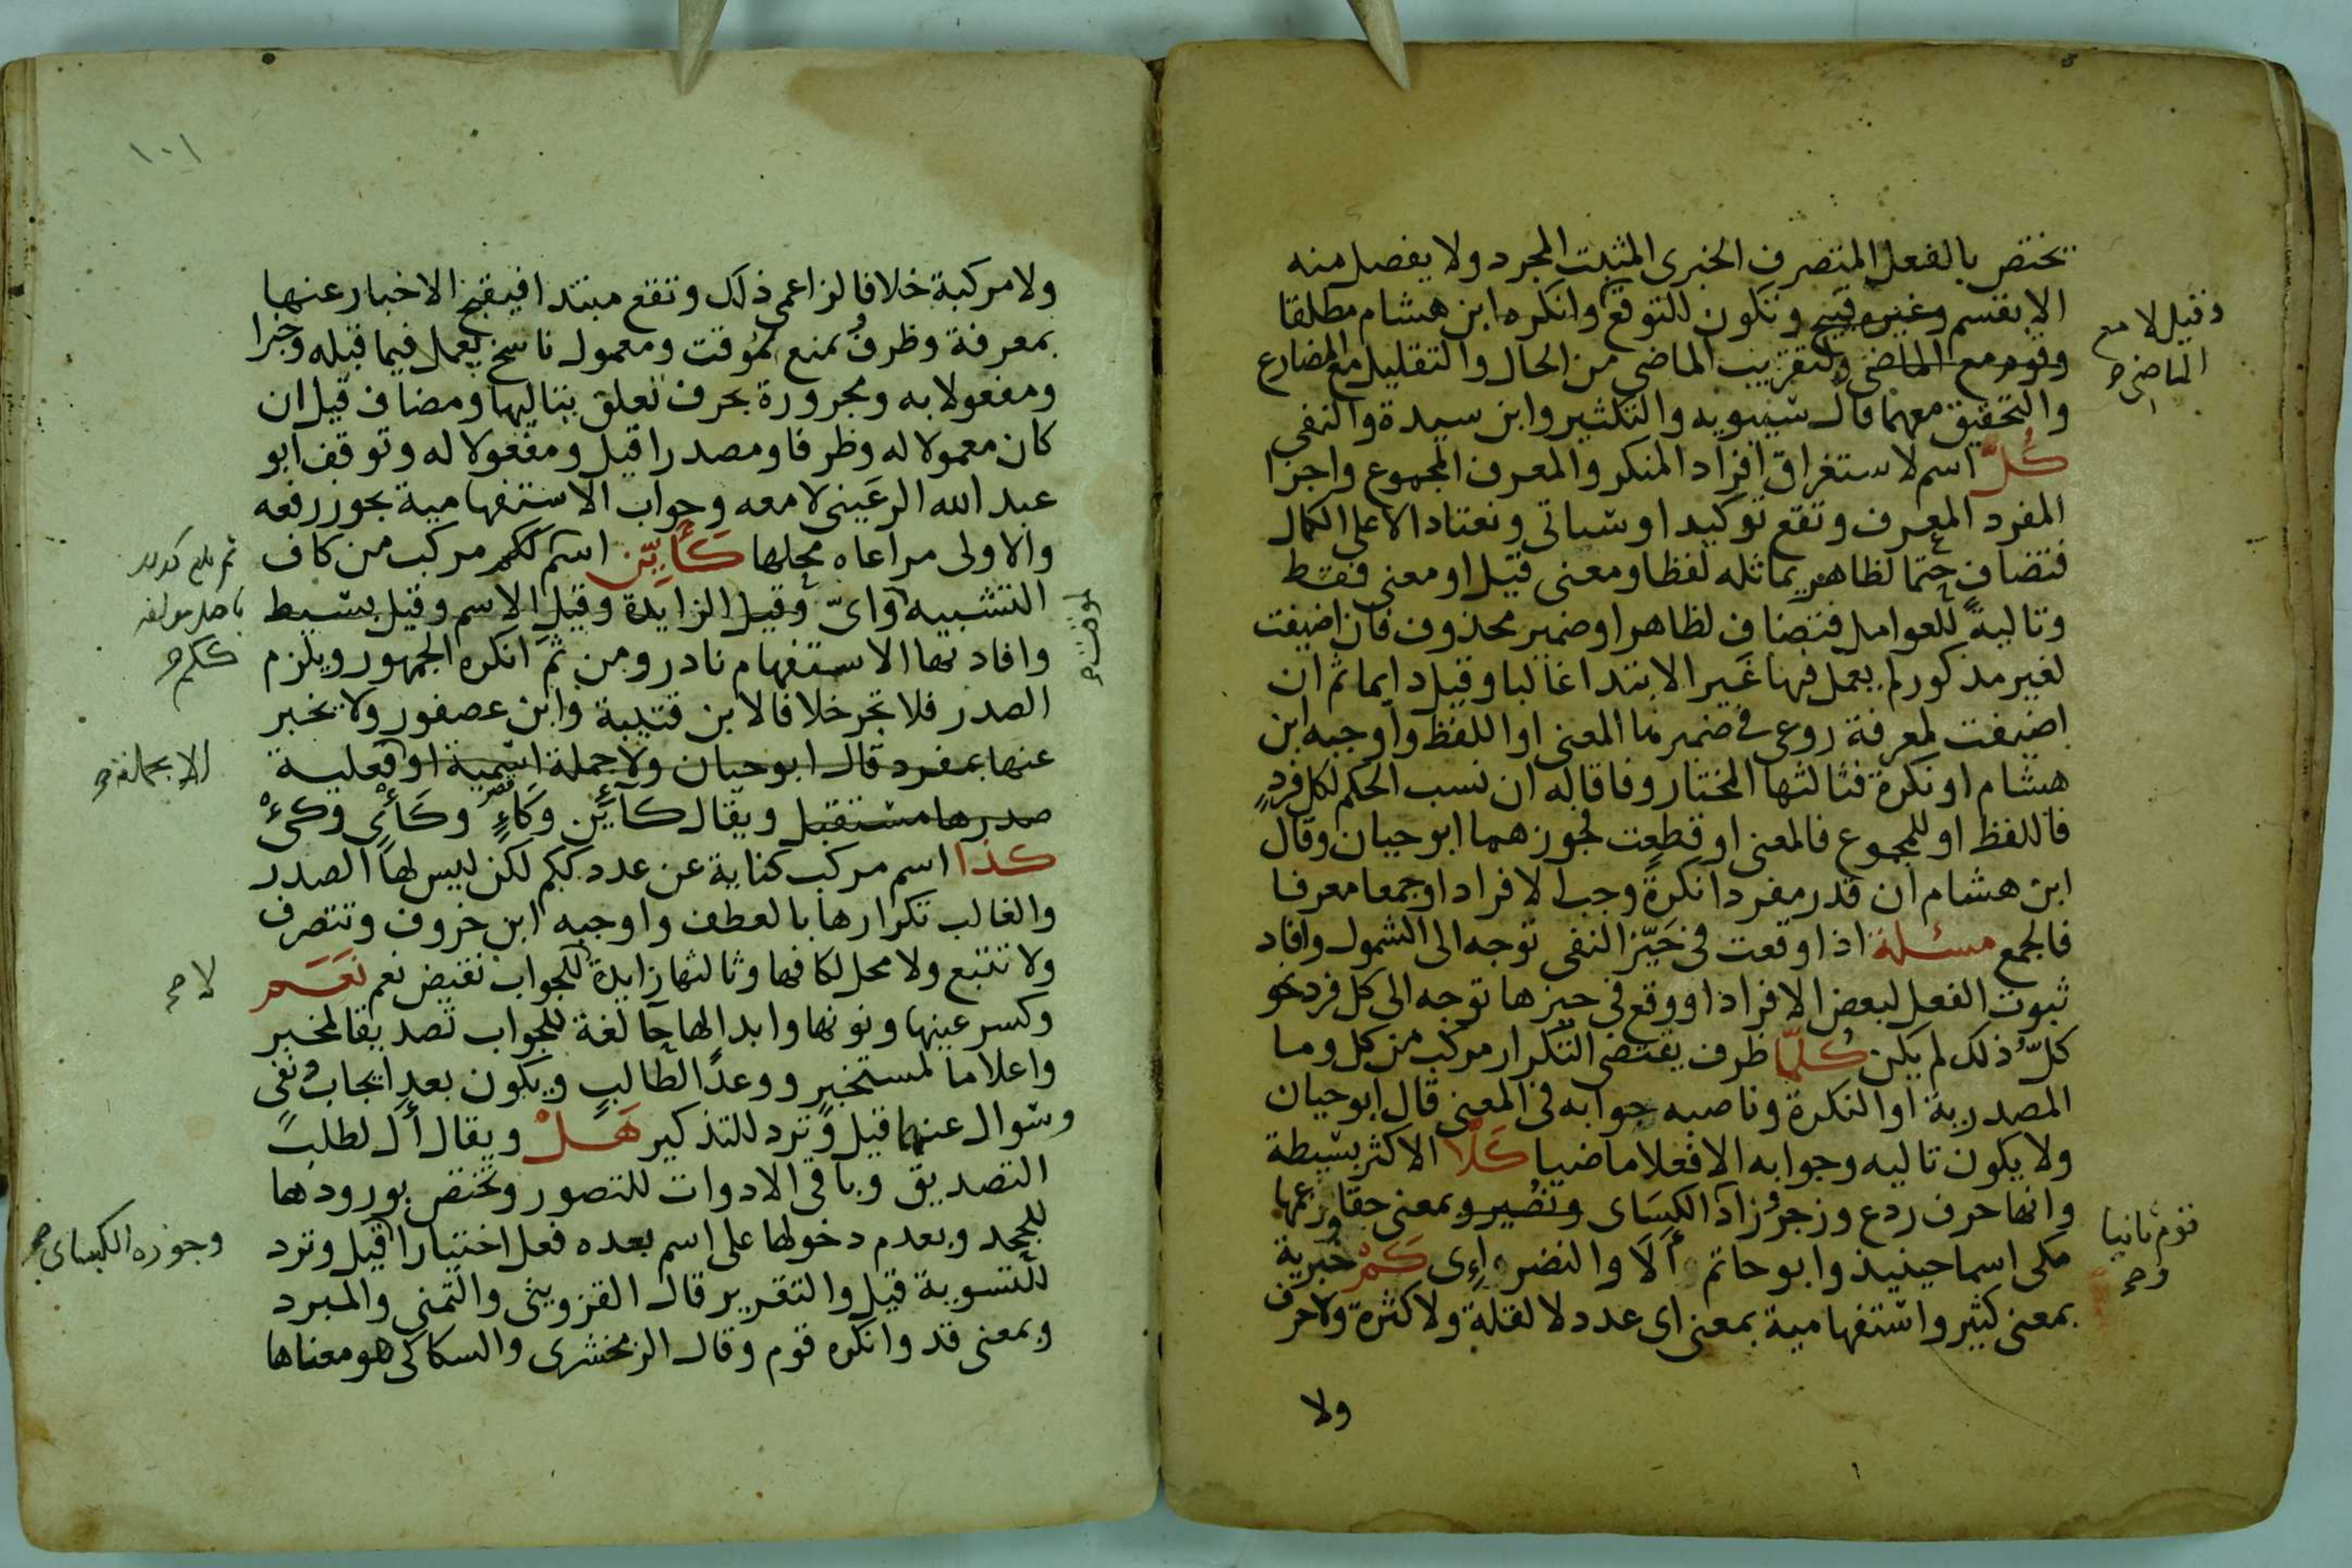 تختص بالفعل المتصرف الخبرى المثبت المجرد ولا يفصل منه
الا بقسم وغيره قبيح وتكون للتوقع وانكره ابن هشام مطلقا
وقوم مع الماضى ولتقريب الماضى من الحال والتقليل مع المضارع
وقيل لا مع
الماضى صح
والتحقيق معهما قال سيبويه والتكثير وابن سيدة والنفى
كُلّ اسم لاستغراق افراد المنكر والمعرف المجموع واجزا
المفرد المعرف وتقع توكيدا وسياتى ونعتا دالا على الكمال
فتضاف حتما لظاهر يماثله لفظا ومعنى قيل او معنى فقط
وتالية للعوامل فتضاف لظاهر او ضمير محذوف فان اضيفت
لغير مذكور لم يعمل فيها غير الابتدا غالبا وقيل دايما ثم ان
اضيفت لمعرفة روعى فى ضميرها المعنى او اللفظ واوجبه ابن
هشام او نكرة فثالثها المختار وفاقا له ان نسب الحكم لكل فردٍ
فاللفظ او للمجموع فالمعنى او قطعت فجوزهما ابو حيان وقال
ابن هشام ان قدر مفردا نكرةً وجب الافراد او جمعا معرفا
فالجمع مسئلة اذا وقعت فى حَيّز النفى توجه الى الشمول وافاد
ثبوت الفعل لبعض الافراد او وقع فى حيزها توجه الى كل فرد نحو
كلّ ذلك لم يكن كُلّما ظرف يقتضى التكرار مركب من كل وما
المصدرية او النكرة وناصبه جوابه فى المعنى قال ابو حيان
ولا يكون تاليه وجوابه الا فعلا ماضيا كَلّا الاكثر بسيطة
وانها حرف ردع وزجر وزاد الكسَاى ونُصَير وبمعنى حقا وزعمها
قوم ثانيا
صح
مكى اسما حينيذ وابو حاتم أَلَا والنضر وإِى كَمْ خبرية
بمعنى كثير واستفهامية بمعنى اى عدد لا لقلة ولا كثرة ولا حرف
ولا
١٠١
ولا مركبة خلافا لزاعمى ذلك وتقع مبتدا فيقبح الاخبار عنها
بمعرفة وظرفٌ بمنع لموقت ومعمول ناسخ يعمل فيما قبله وخبرا
ومفعولا به ومجرورة بحرف تعلق بتاليها ومضاف قيل ان
كان معمولا له وظرفا ومصدرا قيل ومفعولا له وتوقف ابو
عبد الله الرعَينى لا معه وجواب الاستفهامية يجوز رفعه
والاولى مراعاه محلها كَأَيِّن اسم لكم مركب من كاف
التشبيه واىّ وقيل الزايدة وقيل الاسم وقيل بسيط
ككم صح
وافادتها الاستفهام نادر ومن ثَمّ انكره الجمهور ويلزم
الصدر فلا تجر خلافا لابن قتيبة وابن عصفور ولا يخبر
عنها بمفرد قال ابو حيان ولا جملة اسمية او فعلية
الا بجملة صح
صدرها مستقبل ويقال كآيِّن وكَاءٍ وكَأْى وكىْءْ
كذا اسم مركب كناية عن عدد ككم لكن ليس لها الصدر
والغالب تكرارها بالعطف واوجبه ابن خروف وتتصرف
ولا تتبع ولا محل لكافها وثالثها زايدة للجواب نقيض نعم نَعَـم
لا صح
وكسر عينها ونونها وابدالها حا لغة للجواب تصديقا لمخبر
واعلاما لمستخبر ووعدًا لطالبٍ ويكون بعد ايجاب ونفى
وسوال عنهما قيل وترد للتذكير هَلْ ويقال أَل لطلب
التصديق وباقى الادوات للتصور وتختص بورودها
للجحد وبعدم دخولها على اسم بعده فعل اختيارا قيل وترد
وجوزه الكساى صح
للتسوية قيل والتقرير قال القزوينى والتمنى والمبرد
وبمعنى قد وانكره قوم وقال الزمخشرى والسكاكى هو معناها